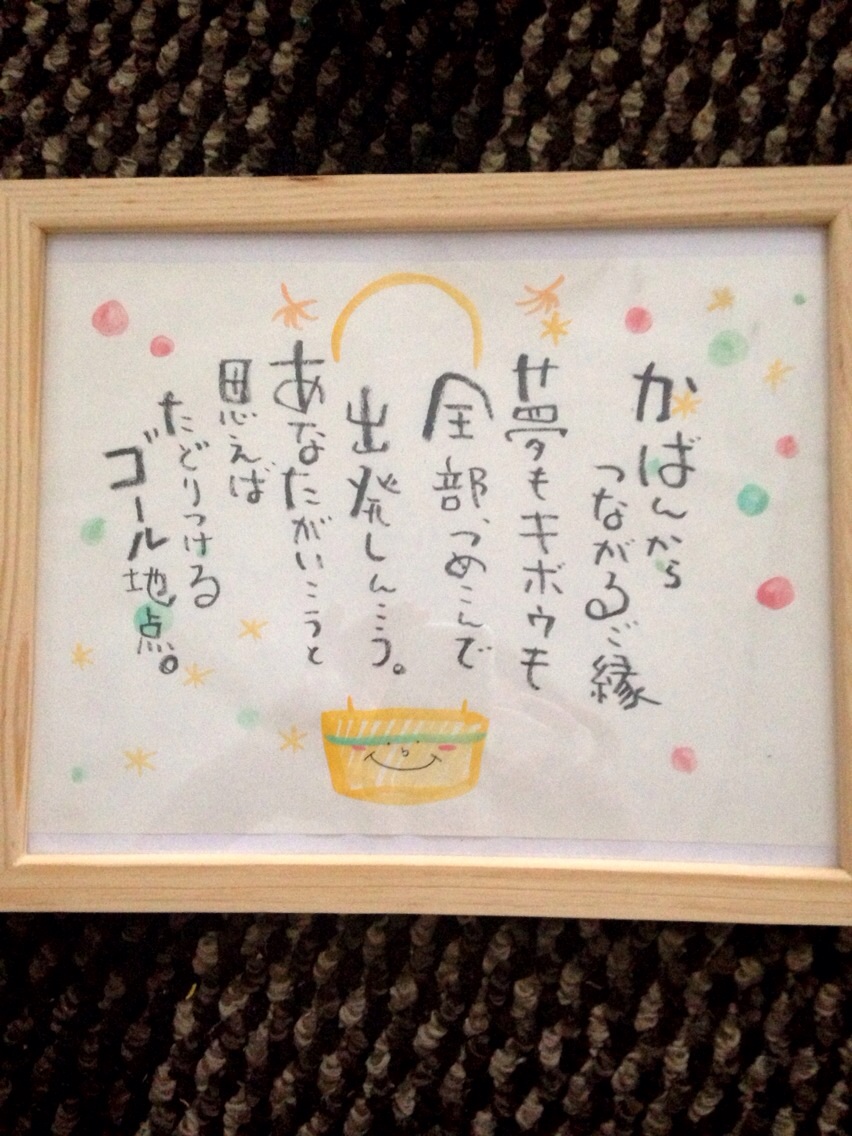 かばんから
つながるご縁
夢もキボウも
全部、つめこんで
出発しんこう。
あなたがいこうと
思えば
たどりつける
ゴール地点。